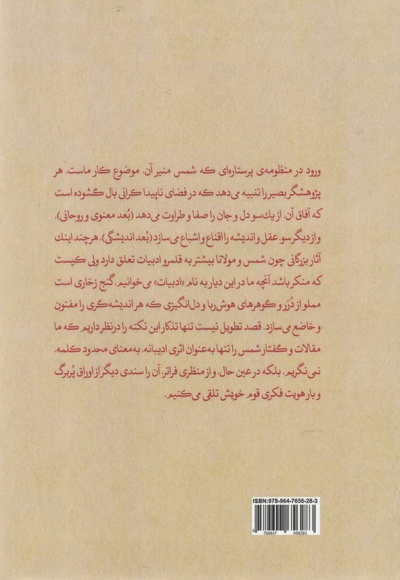 ورود در منظومه‌ی پرستاره‌ای که شمس منیر آن، موضوع کار ماست، هر
پژوهشگر بصیر را تنبیه می‌دهد که در فضای ناپیدا کرانی بال گشوده است
که آفاق آن، از یک‌سو دل و جان را صفا و طراوت می‌دهد (بُعد معنوی و روحانی)،
و از دیگر سو عقل و اندیشه را اقناع و اشباع می‌سازد (بُعد اندیشگی). هرچند اینک
آثار بزرگانی چون شمس و مولانا بیشتر به قلمرو ادبیات تعلق دارد ولی کیست
که منکر باشد آنچه ما در این دیار به نام «ادبیات» می‌خوانیم، گنج زخاری است
مملو از دُرَر و گوهرهای هوش‌ربا و دل‌انگیزی که هر اندیشه‌گری را مفتون
و خاضع می‌سازد. قصد تطویل نیست تنها تذکار این نکته را درنظر داریم که ما
مقالات و گفتار شمس را تنها به‌عنوان اثری ادیبانه، به‌معنای محدود کلمه،
نمی‌نگریم، بلکه در عین حال، و از منظری فراتر، آن را سندی دیگر از اوراق پُربرگ
و بار هویت فکری قوم خویش تلقی می‌کنیم.
ISBN: 978-964-7656-28-3
9 789647 656283